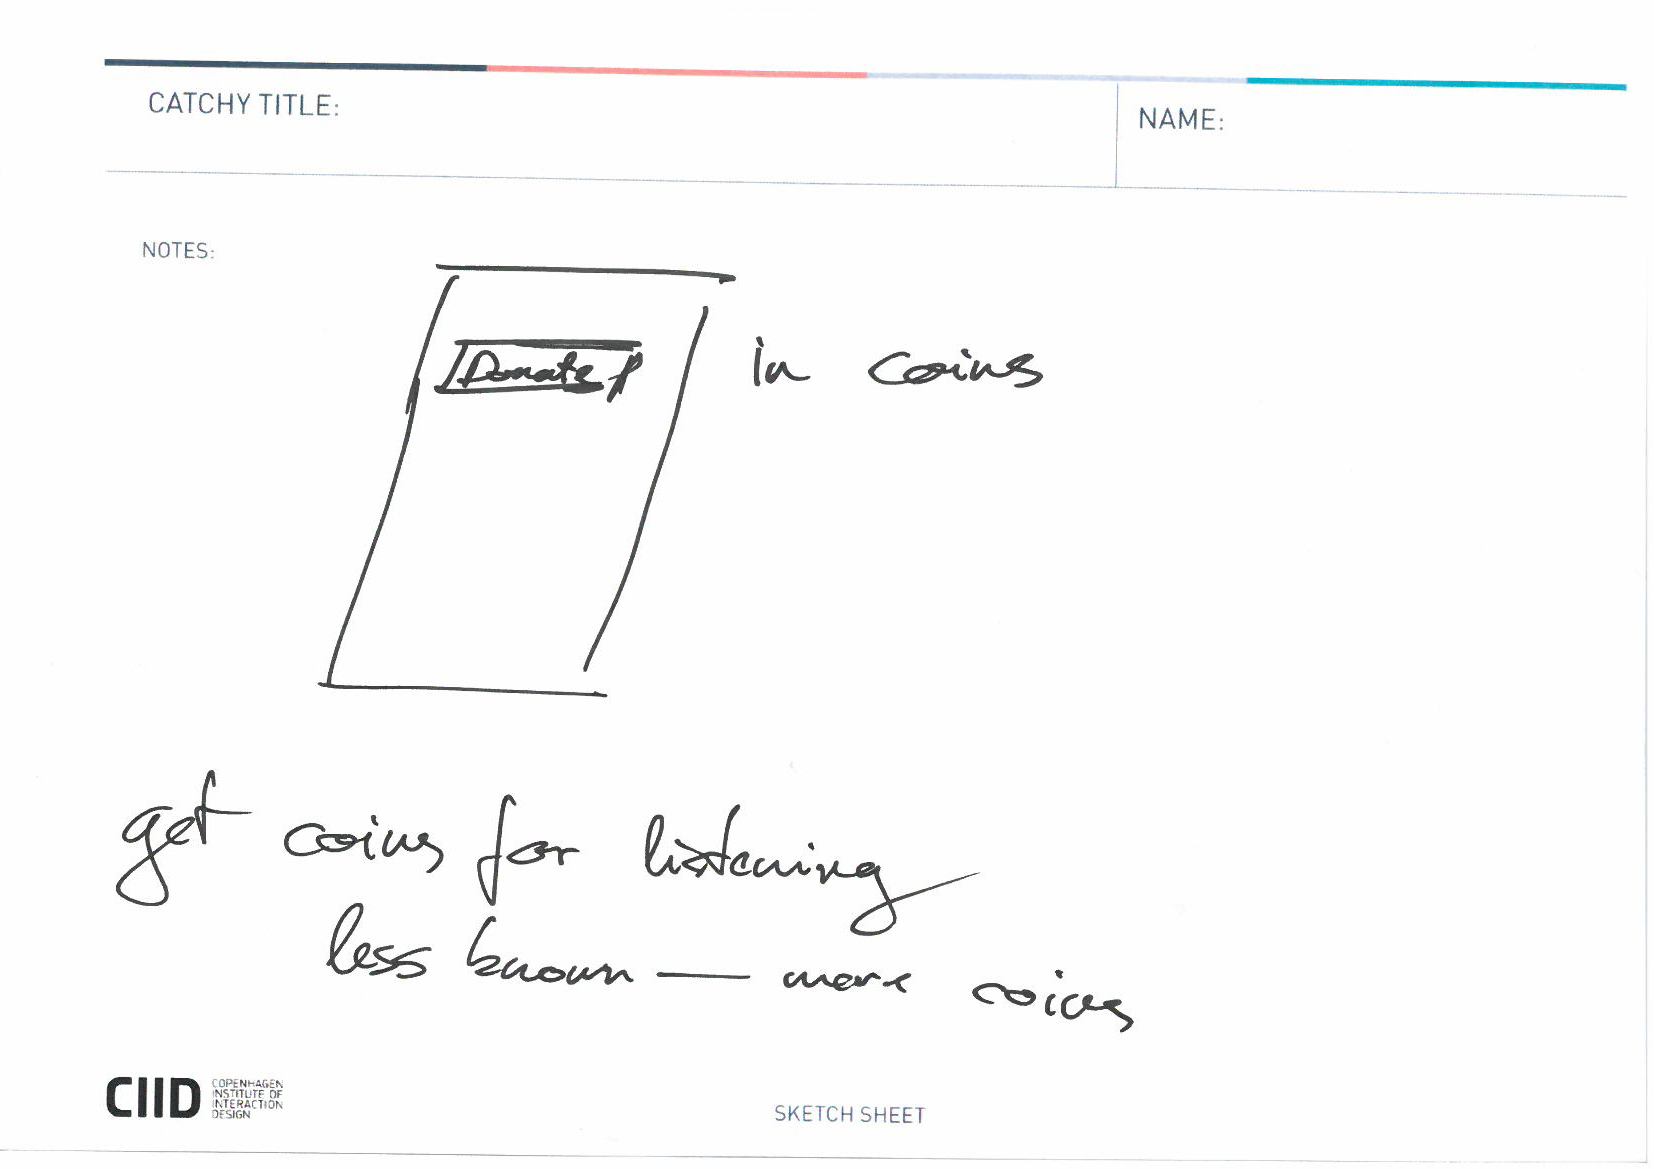 CATCHY TITLE:
NAME:
NOTES:
Donate
in coins
get coins for listening
less known — more coins
CIID
COPENHAGEN
INSTITUTE OF
INTERACTION
DESIGN
SKETCH SHEET